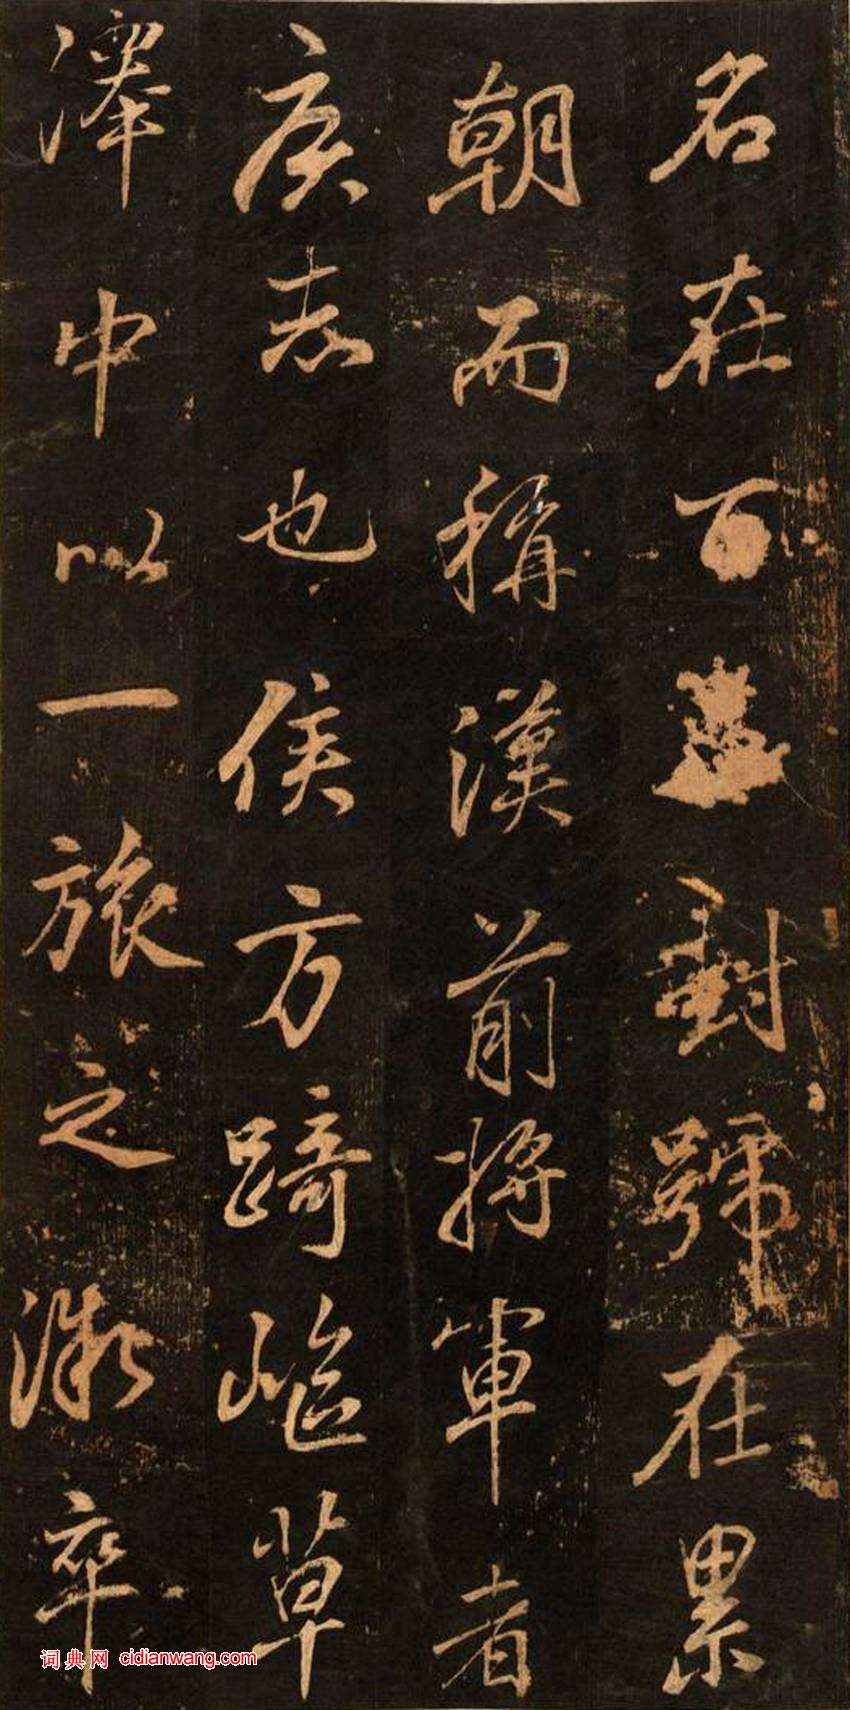 名在百封號在累
朝而稱漢前將軍者
矦志也侯方踦嶇草
澤中以一旅之卒
词典网 cidianwang.com